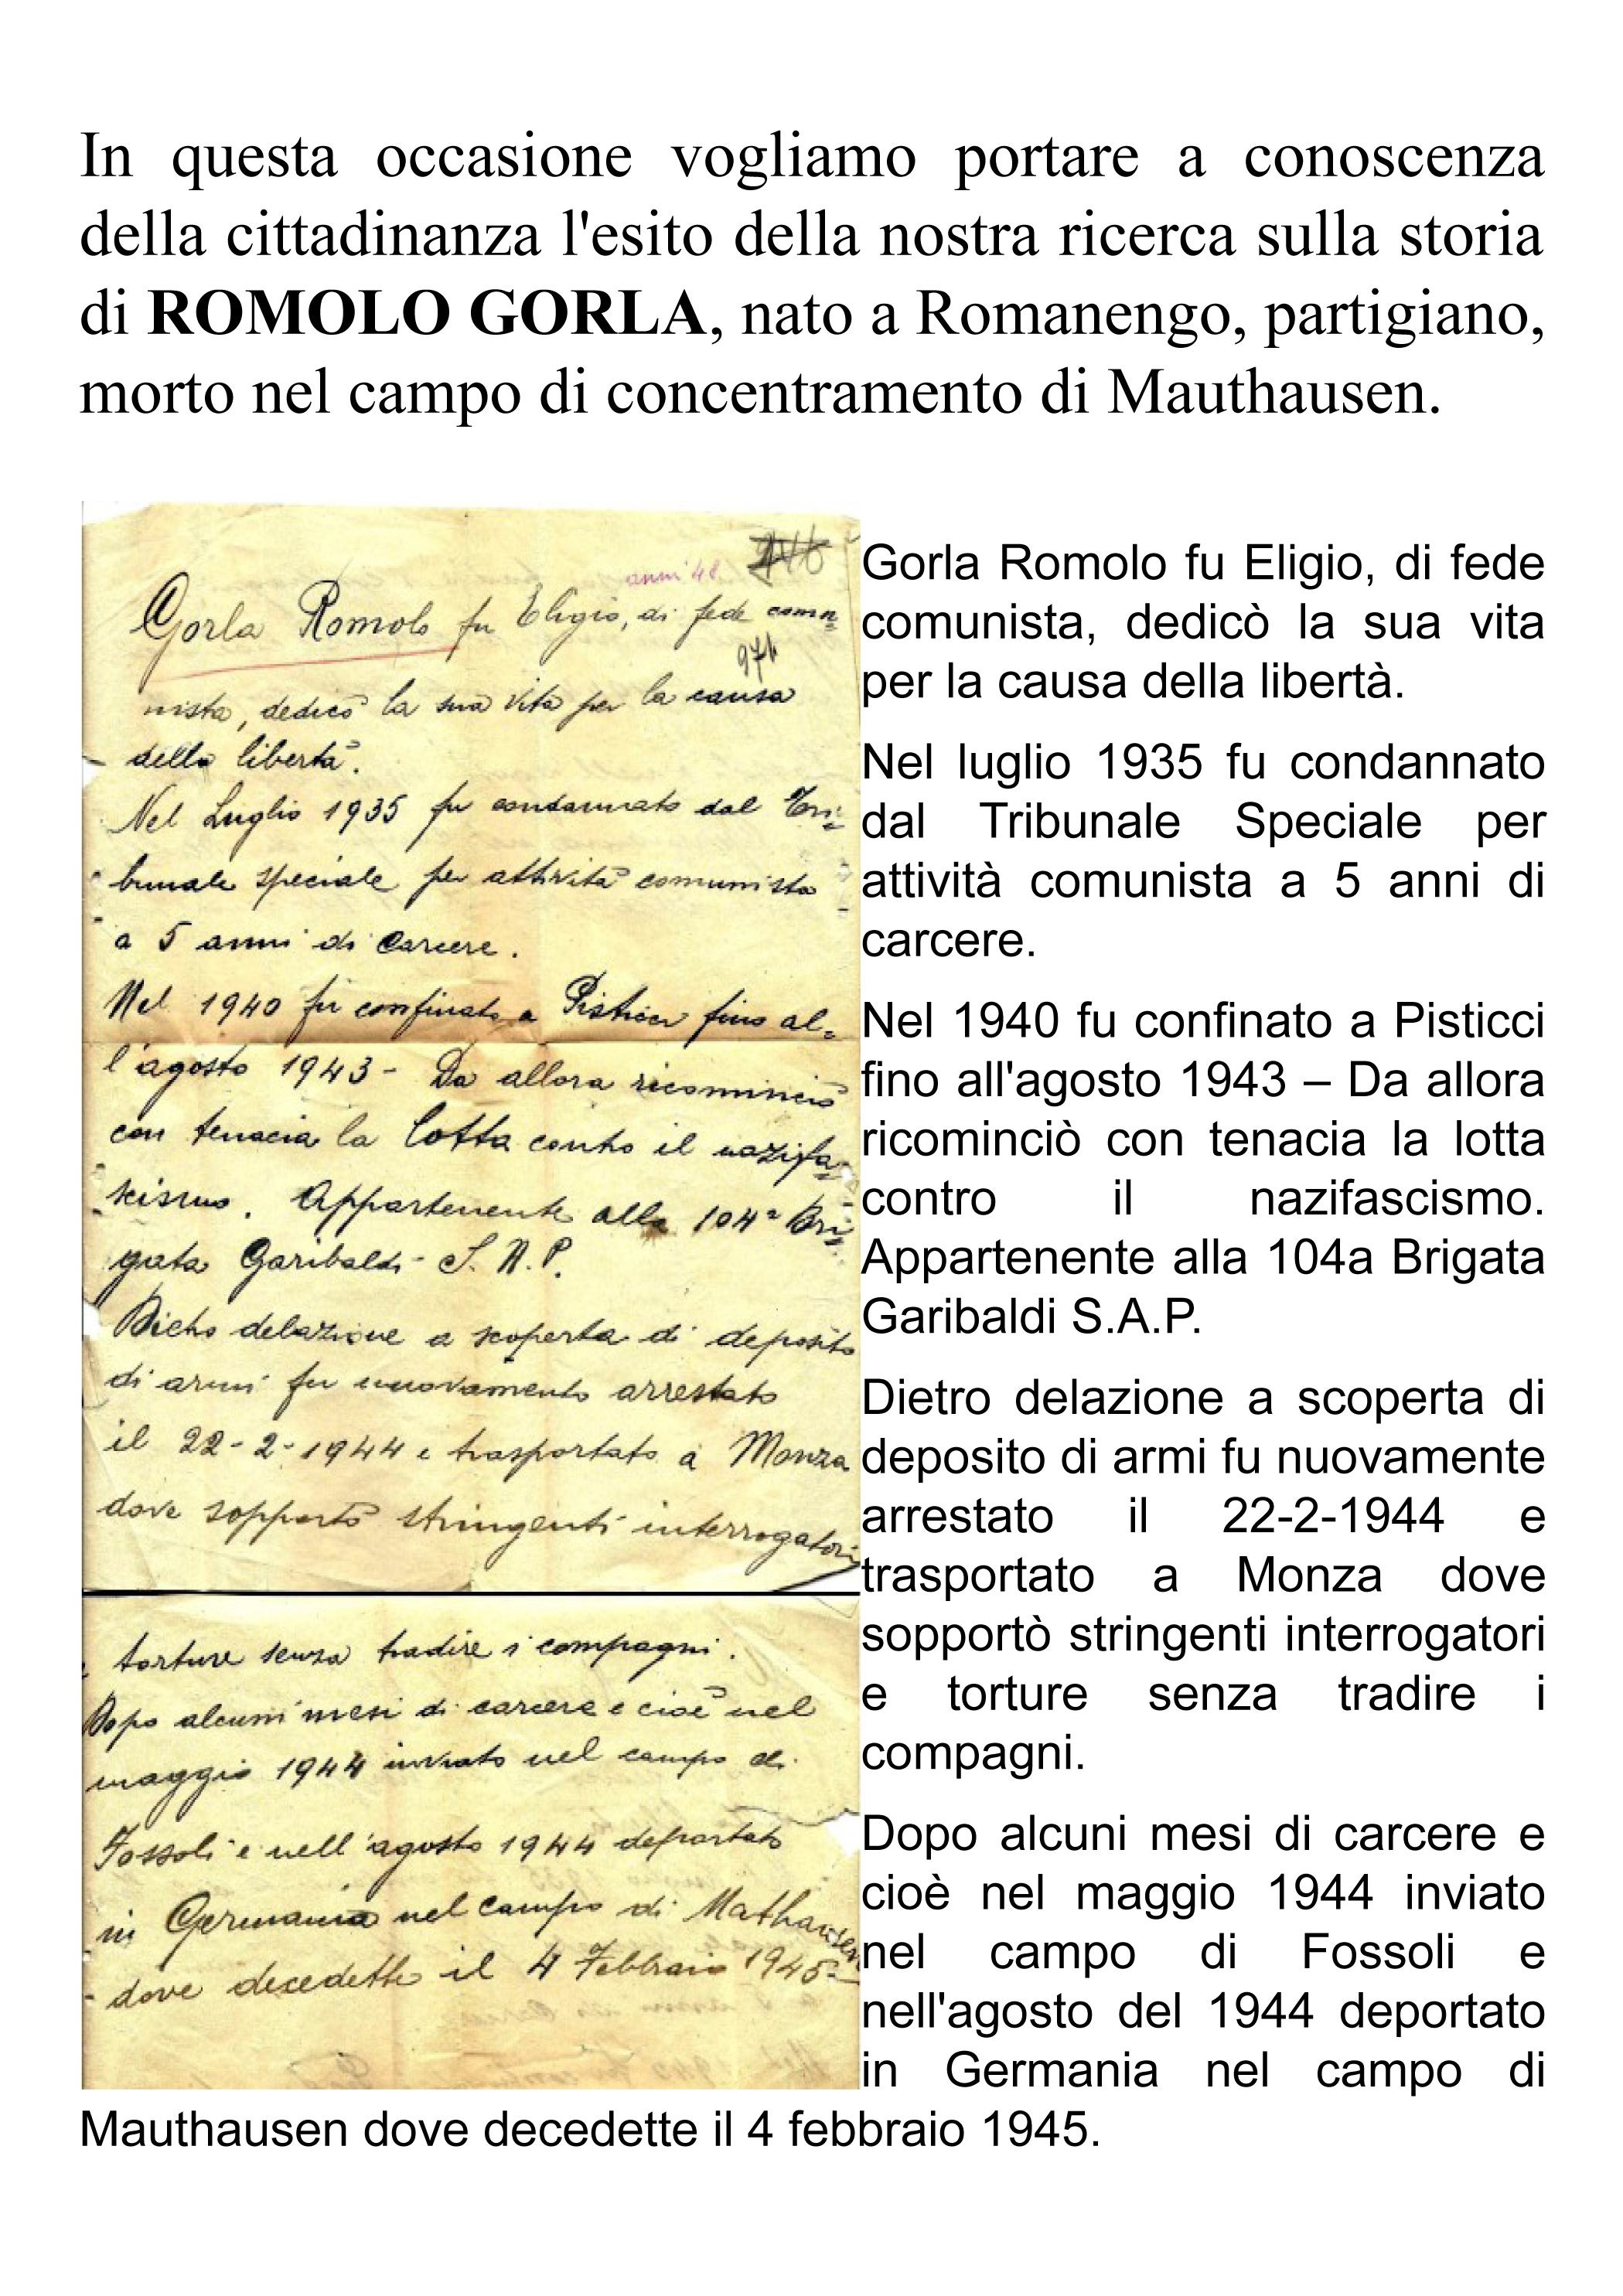 In questa occasione vogliamo portare a conoscenza
della cittadinanza l'esito della nostra ricerca sulla storia
di ROMOLO GORLA, nato a Romanengo, partigiano,
morto nel campo di concentramento di Mauthausen.
anni 48
Gorla Romolo fu Eligio, di fede comu=
974
nista, dedicò la sua vita per la causa
della libertà.
Nel Luglio 1935 fu condannato dal Tri=
bunale speciale per attività comunista
a 5 anni di carcere.
Nel 1940 fu confinato a Pisticci fino al=
l'agosto 1943 - Da allora ricominciò
con tenacia la lotta contro il nazifa=
scismo. Appartenente alla 104a Bri=
gata Garibaldi - S.A.P.
Dietro delazione a scoperta di deposito
di armi fu nuovamente arrestato
il 22-2-1944 e trasportato a Monza
dove sopportò stringenti interrogatori
torture senza tradire i compagni.
Dopo alcuni mesi di carcere e cioè nel
maggio 1944 inviato nel campo di
Fossoli e nell'agosto 1944 deportato
in Germania nel campo di Mathausen
dove decedette il 4 Febbraio 1945-
Gorla Romolo fu Eligio, di fede
comunista, dedicò la sua vita
per la causa della libertà.
Nel luglio 1935 fu condannato
dal Tribunale Speciale per
attività comunista a 5 anni di
carcere.
Nel 1940 fu confinato a Pisticci
fino all'agosto 1943 – Da allora
ricominciò con tenacia la lotta
contro il nazifascismo.
Appartenente alla 104a Brigata
Garibaldi S.A.P.
Dietro delazione a scoperta di
deposito di armi fu nuovamente
arrestato il 22-2-1944 e
trasportato a Monza dove
sopportò stringenti interrogatori
e torture senza tradire i
compagni.
Dopo alcuni mesi di carcere e
cioè nel maggio 1944 inviato
nel campo di Fossoli e
nell'agosto del 1944 deportato
in Germania nel campo di
Mauthausen dove decedette il 4 febbraio 1945.